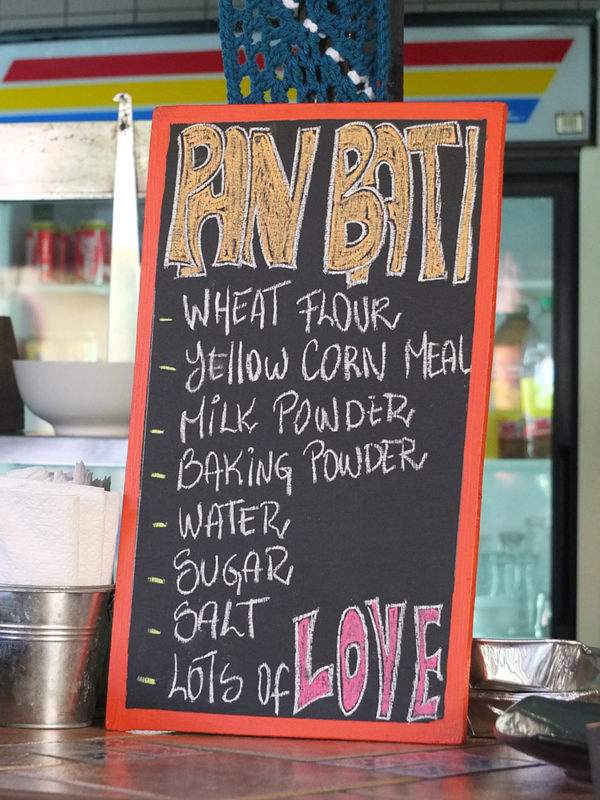 PAN BATI
- WHEAT FLOUR
- YELLOW CORN MEAL
- MILK POWDER
- BAKING POWDER
- WATER
- SUGAR
- SALT
- LOTS OF LOVE